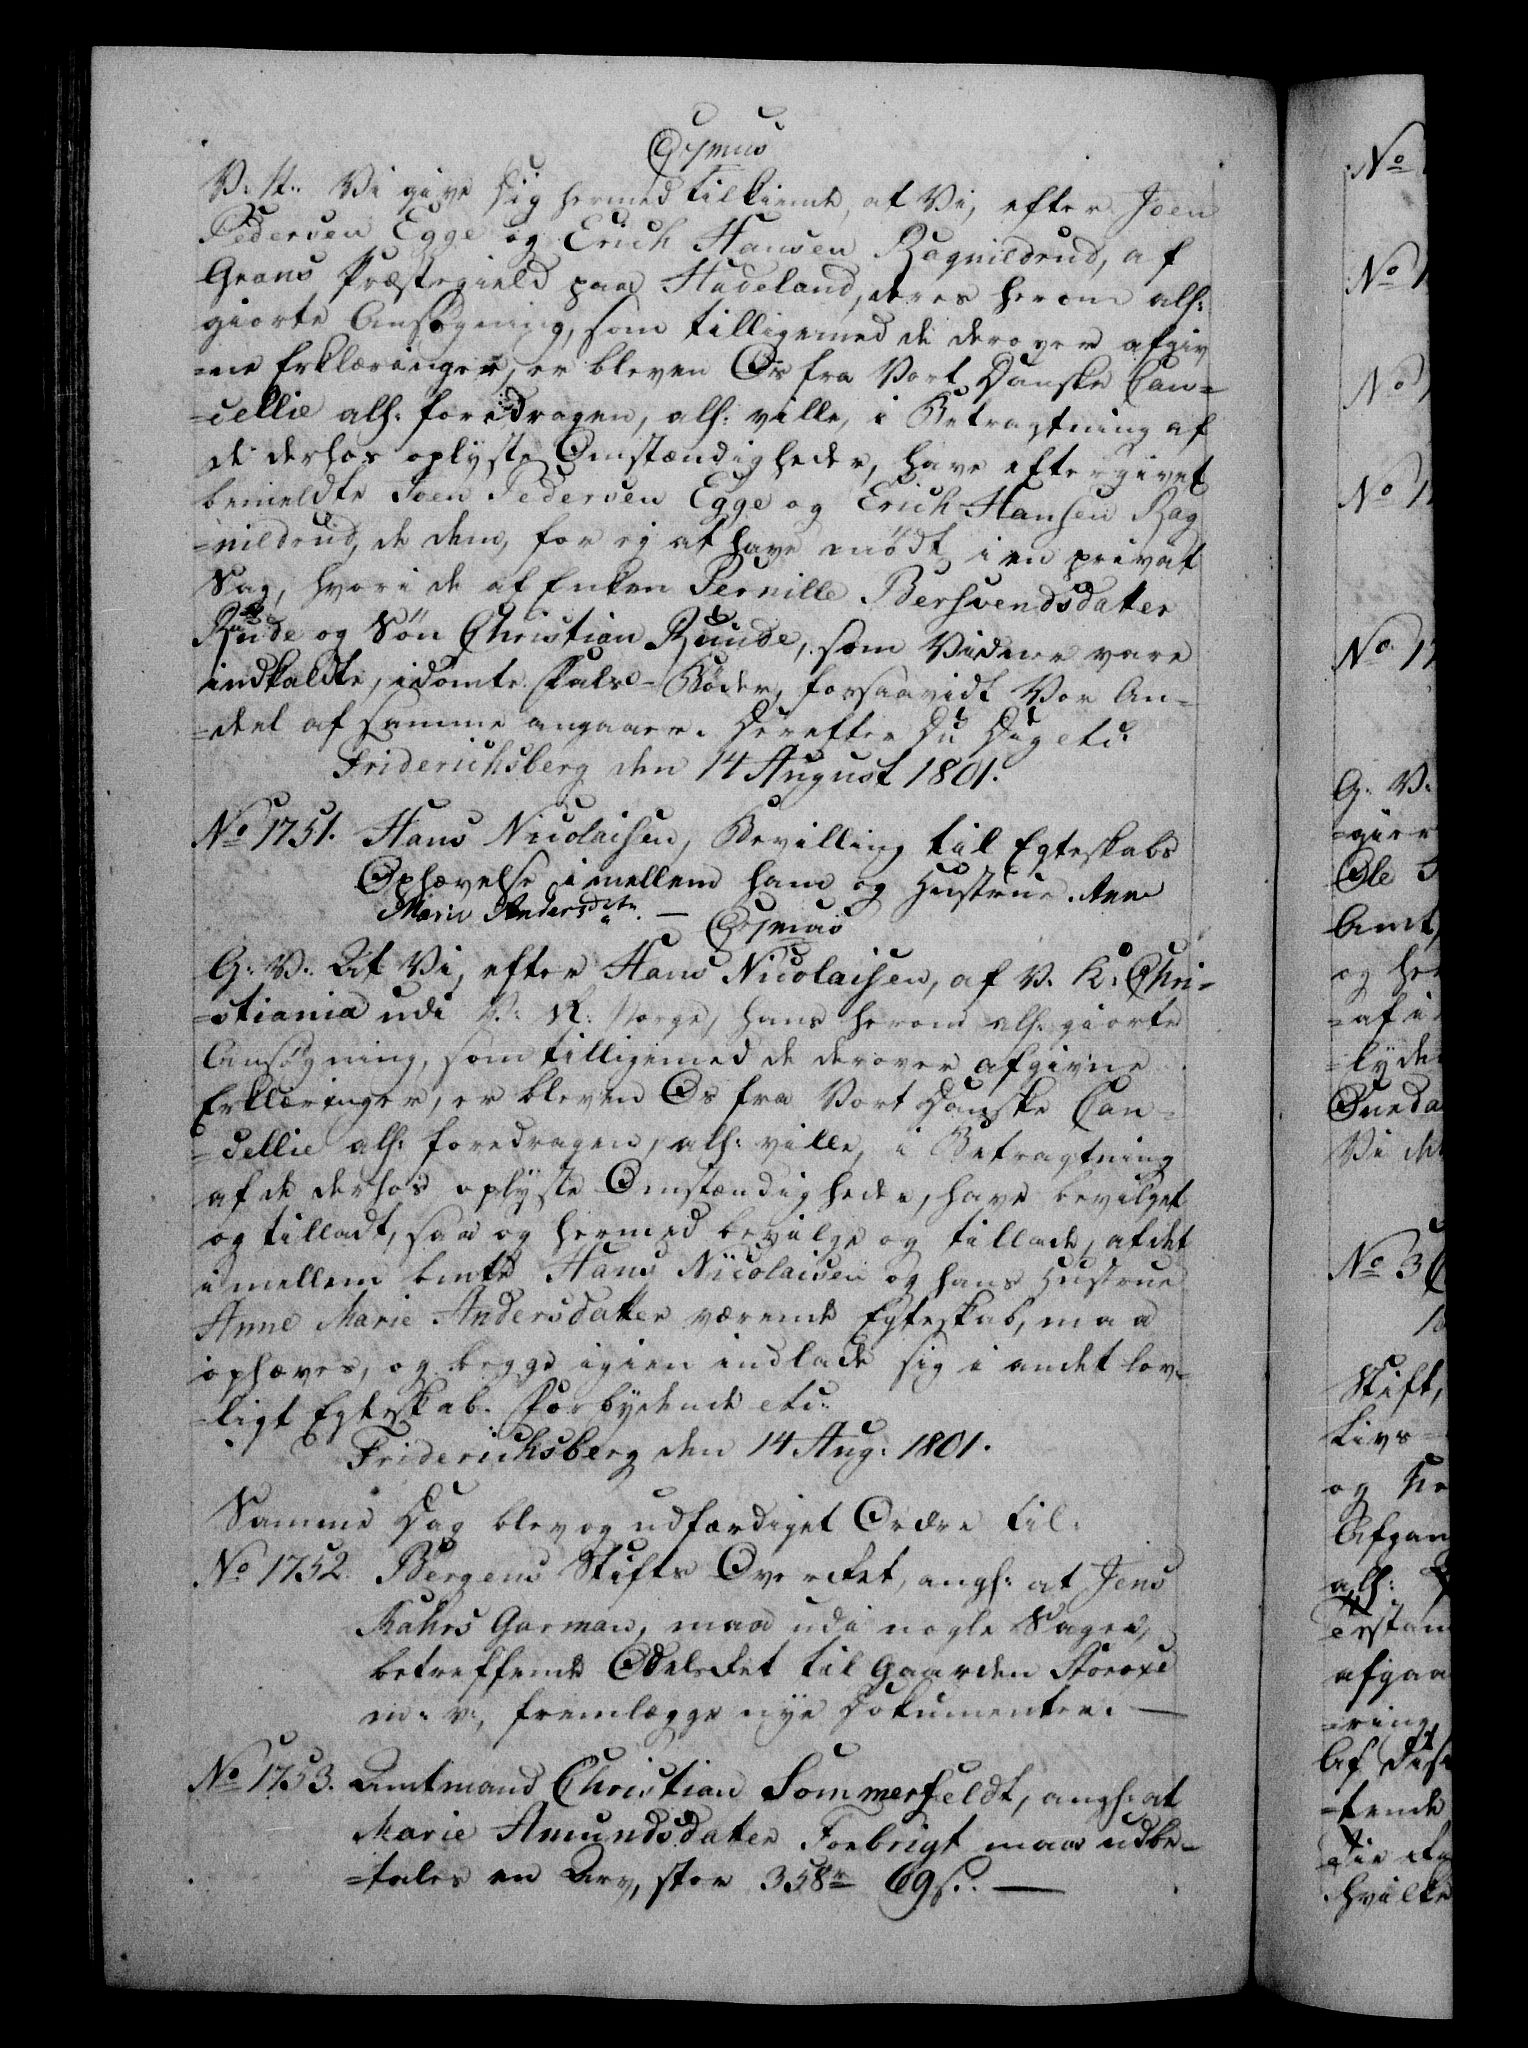 V: H:. Vi give Dig hermed tilkiende, at Vi, efter Joen
Pedersen Egge og Erich Hansen Ragnildrud, af
Grans Præstegield paa Hadeland, deres herom alh:
giorte Ansøgning, som tilligemed de derover afgiv
=ne Erklæringer, er bleven Os fra Vort Danske Can=
=cellie alh: foredragen, alh: ville, i Betragtning af
de derhos oplyste Omstændigheder, have eftergivet
bemeldte Joen Pedersen Egge og Erich Hansen Rag
=nildrud, de dem, for ej at have mødt i en privat
Sag, hvori de af Enken Pernille Bersvendsdatter
Runde og Søn Christian Runde, som Vidner vare
indkaldte, idømte Falds-Bøder, forsaavidt Vor An=
=deel af samme angaaer. Derefter Du Dig etc:
Friderichsberg den 14 August 1801.
No 1751. Hans Nicolaisen, Bevilling til Egteskabs
Ophævelse imellem ham og Hustrue Anne
Marie Andersdtr. —
G: V:. At Vi, efter Hans Nicolaisen, af V. K: Chri=
=stiania udi V: R: Norge, hans herom alh: giorte
Ansøgning, som tilligemed de derover afgivne
Erklæringer, er bleven Os fra Vort Danske Can=
=cellie alh: foredragen, alh: ville, i Betragtning
af de derhos oplyste Omstændigheder, have bevilget
og tilladt, saa og hermed bevilge og tillade, at det
imellem bemte Hans Nicolaisen og hans Hustrue
Anne Marie Andersdatter værende Egteskab, maa
ophæves, og begge igien indlade sig i andet lov=
=ligt Egteskab. Forbydende etc:
Friderichsberg den 14 Aug: 1801.
Samme Dag blev og udfærdiget Ordre til:
No 1752. Bergens Stifts Overret, angh: at Jens
Kahrs Garman, maa udi nogle Sager,
betreffende Odelsret til Gaarden Storoxe
m: v:, fremlægge nye Dokumenter. —
No 1753. Amtmand Christian Sommerfeldt, angh: at
Marie Amundsdatter Foebrigt maa udbe=
=tales en Arv, stor 358 r 69 s. —